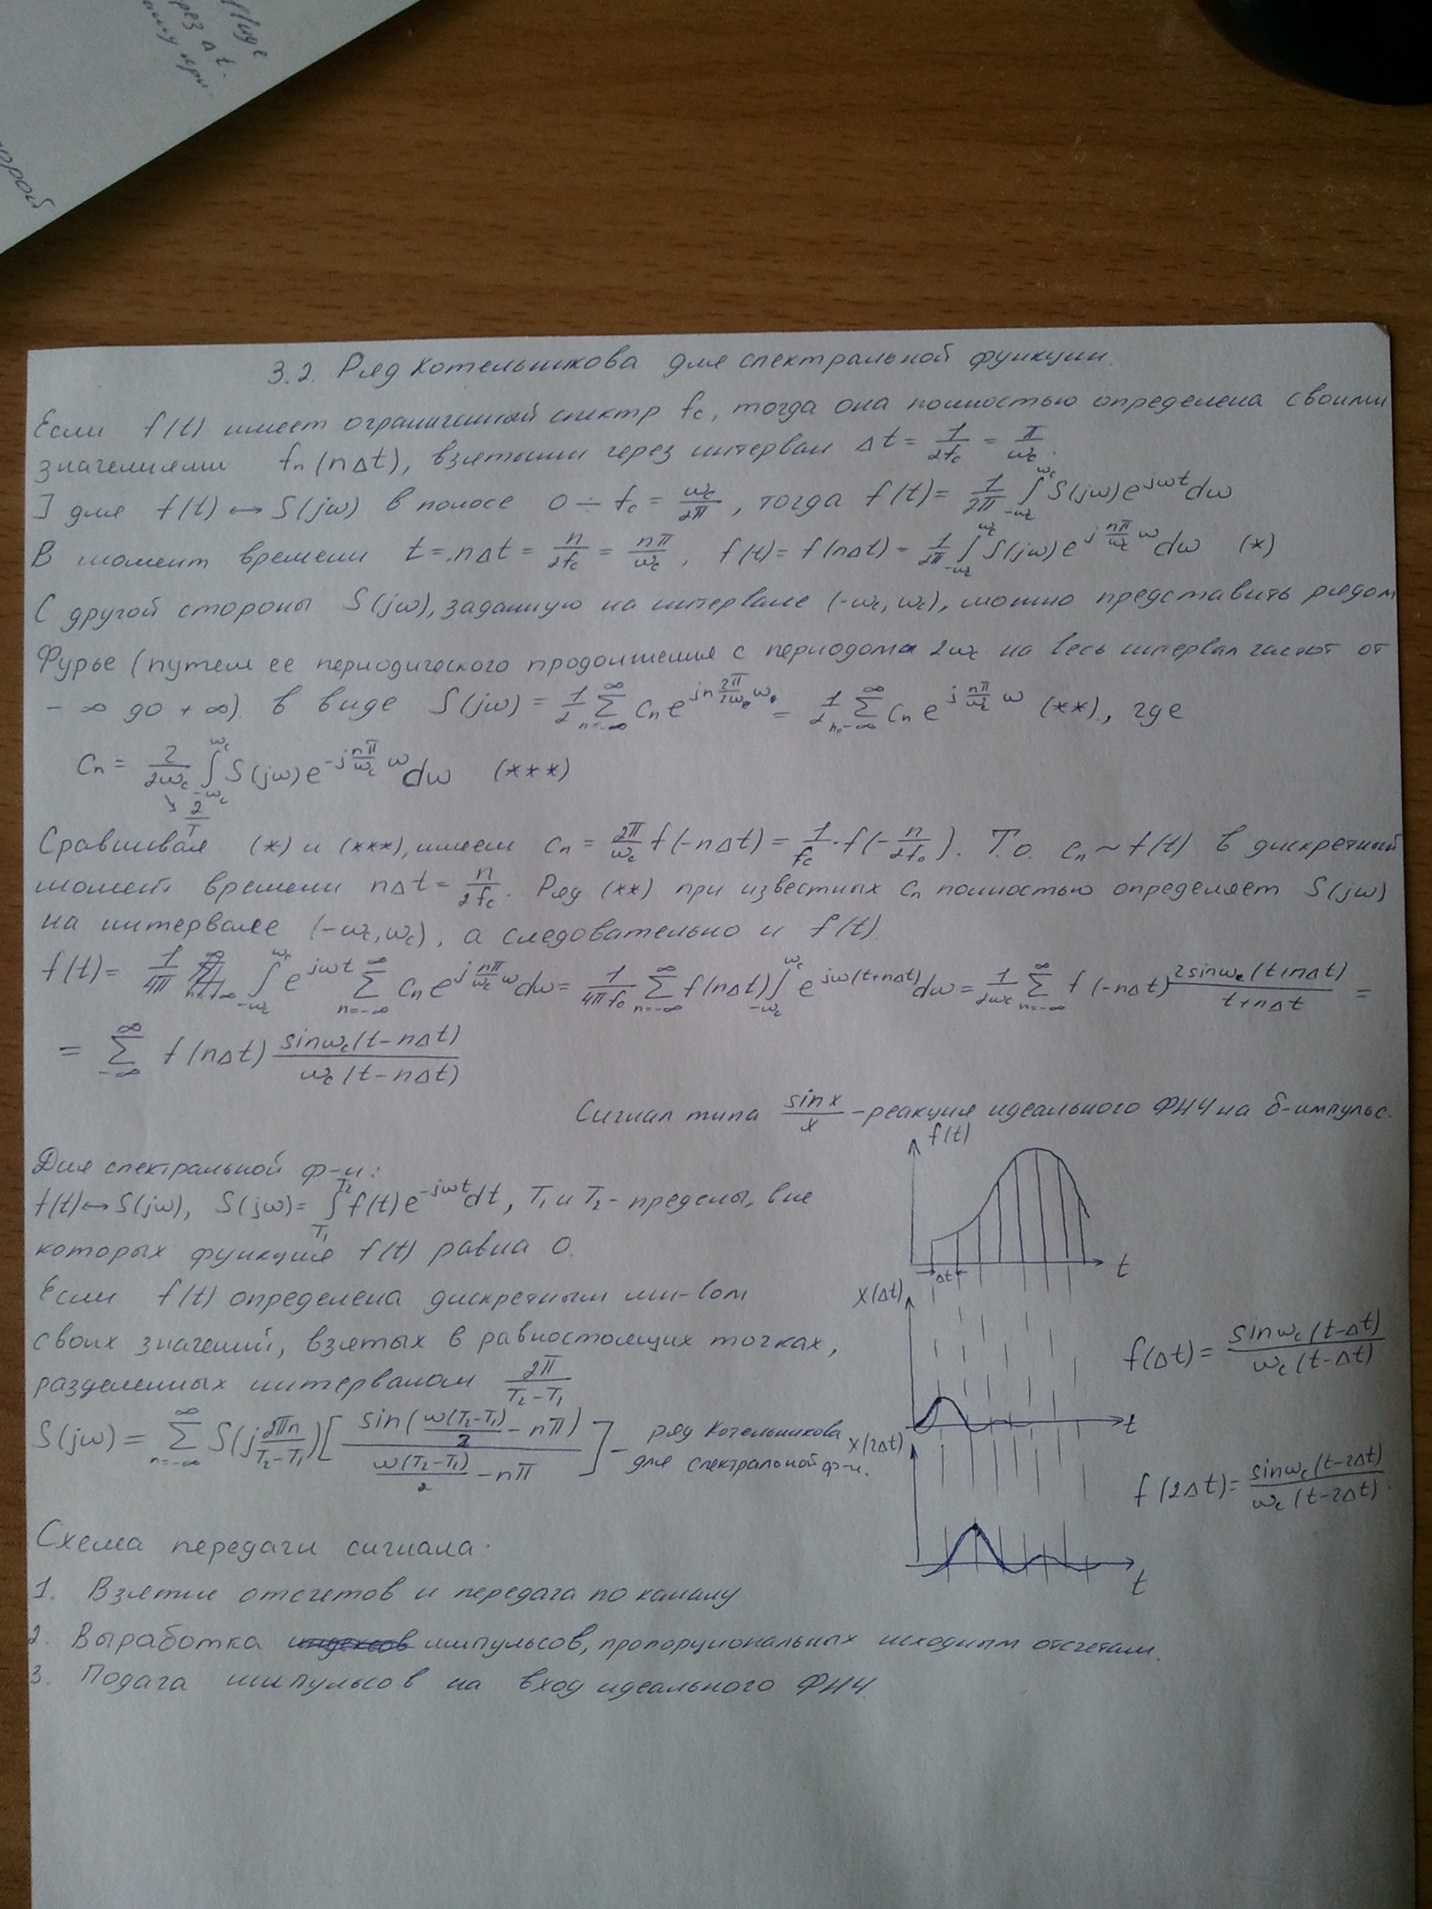 лиде
рез Δt.
алу при
орой
3.2. Ряд Котельникова для спектральной функции.
Если f(t) имеет ограниченный спектр fc, тогда она полностью определена своими
значениями fn(nΔt), взятыми через интервал Δt = 1/2fc = π/ωc.
] для f(t) ↔ S(jω) в полосе 0 ÷ fc = ωc/2π, тогда f(t) = 1/2π ∫_{-ωc}^{ωc} S(jω)e^{jωt}dω
В момент времени t = nΔt = n/2fc = nπ/ωc, f(t) = f(nΔt) = 1/2π ∫_{-ωc}^{ωc} S(jω)e^{j nπ/ωc ω}dω (*)
С другой стороны S(jω), заданную на интервале (-ωc, ωc), можно представить рядом
Фурье (путем ее периодического продолжения с периодом 2ωc на весь интервал частот от
-∞ до +∞) в виде S(jω) = 1/2 Σ_{n=-∞}^{∞} Cn e^{jn 2π/2ωc ω} = 1/2 Σ_{n=-∞}^{∞} Cn e^{j nπ/ωc ω} (**), где
Cn = 2/2ωc ∫_{-ωc}^{ωc} S(jω)e^{-j nπ/ωc ω}dω (***)
↘ 2/T
Сравнивая (*) и (***), имеем Cn = 2π/ωc f(-nΔt) = 1/fc · f(-n/2f0). Т.о. Cn ~ f(t) в дискретный
момент времени nΔt = n/2fc. Ряд (**) при известных Cn полностью определяет S(jω)
на интервале (-ωc, ωc), а следовательно и f(t).
f(t) = 1/4π ∫_{-ωc}^{ωc} e^{jωt} Σ_{n=-∞}^{∞} Cn e^{j nπ/ωc ω}dω = 1/4πf0 Σ_{n=-∞}^{∞} f(nΔt) ∫_{-ωc}^{ωc} e^{jω(t+nΔt)}dω = 1/2ωc Σ_{n=-∞}^{∞} f(-nΔt) 2sinωc(t+nΔt)/t+nΔt =
= Σ_{-∞}^{∞} f(nΔt) sinωc(t-nΔt)/ωc(t-nΔt)
Сигнал типа sinx/x - реакция идеального ФНЧ на δ-импульс.
Для спектральной ф-и:
f(t) ↔ S(jω), S(jω) = ∫_{T1}^{T2} f(t)e^{-jωt}dt, T1 и T2 - пределы, вне
которых функция f(t) равна 0.
Если f(t) определена дискретным мн-вом
своих значений, взятых в равностоящих точках,
разделенных интервалом 2π/T2-T1
S(jω) = Σ_{n=-∞}^{∞} S(j 2πn/T2-T1)[sin(ω(T2-T1)/2 - nπ)/ω(T2-T1)/2 - nπ] - ряд Котельникова
для спектральной ф-и.
Схема передачи сигнала:
1. Взятие отсчетов и передача по каналу
2. Выработка импульсов, пропорциональных исходным отсчетам.
3. Подача импульсов на вход идеального ФНЧ.
f(t)
Δt
t
x(Δt)
t
f(Δt) = sinωc(t-Δt)/ωc(t-Δt)
x(2Δt)
t
f(2Δt) = sinωc(t-2Δt)/ωc(t-2Δt).